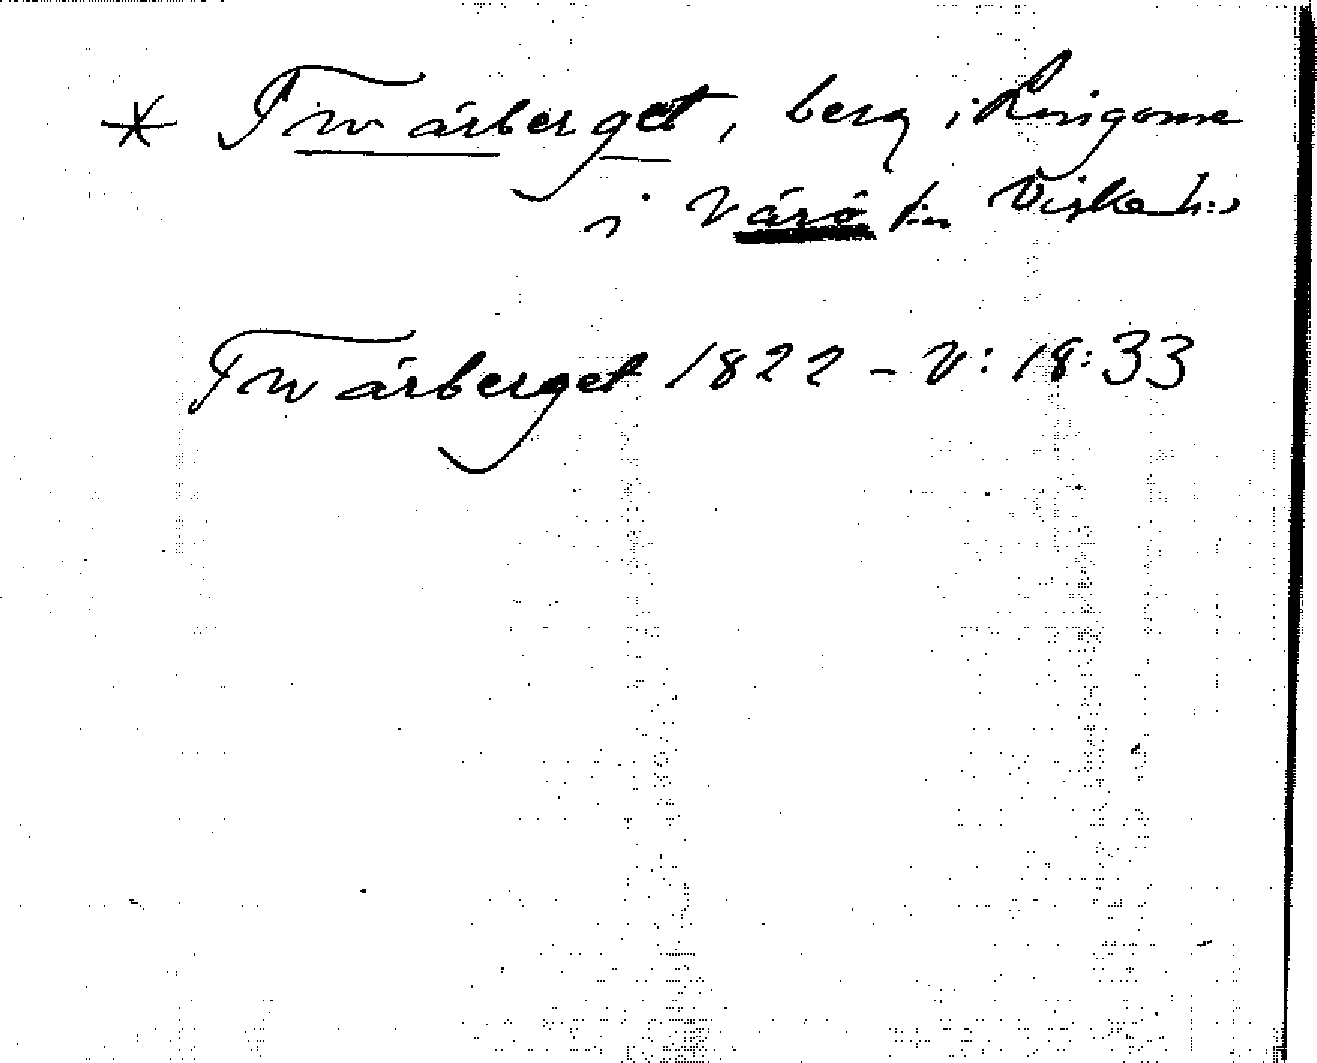 * Twärberget, berg i Lingome
i Värö sn Viske hd
Twärberget 1822 - V: 18:33